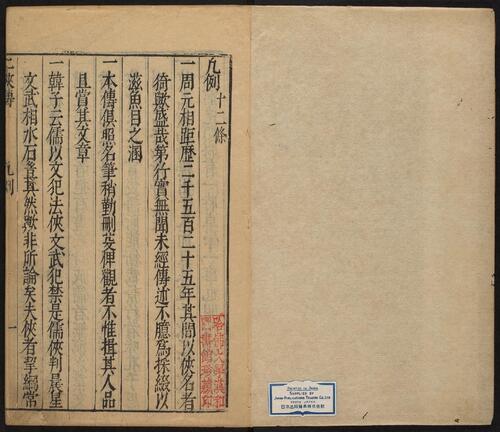 凡例十二條
一周元相距歷二千五百二十五年其間以俠名者
猗歟盛哉第行實無聞未經傳述不臆為採綴以
滋魚目之溷
一本傳俱照名筆稍勤刪芟俾觀者不惟揖其人品
且嘗其文章
一韓子云儒以文犯法俠文武犯禁是儒俠判晨星
文武相水石者其然歟非所論矣夫俠者挈綱常
二俠傳 凡例 一
PRINTED IN JAPAN
SUPPLIED BY
JAPAN PUBLICATIONS TRADING CO., LTD.
TOKYO JAPAN
日本出版貿易株式會社